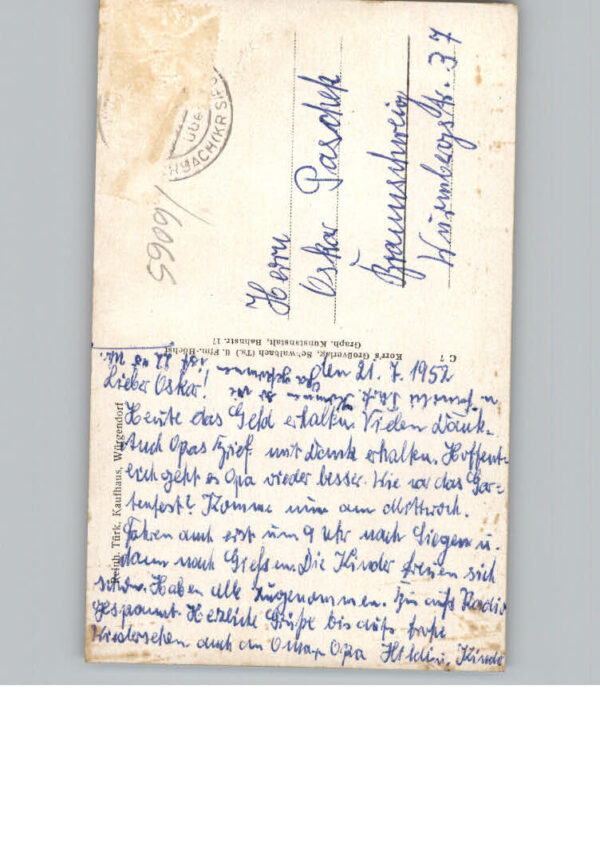 Herrn
Oskar Paschek
Braunschweig
Nürnbergstr. 37
5909/
C 7
Korr's Großverlag, Schwalbach (Ts.) ü. Ffm.-Höchst
Graph. Kunstanstalt, Bahnstr. 17
Reinh. Türk, Kaufhaus, Würgendorf
den 21. 7. 1952
Lieber Oskar!
Heute das Geld erhalten. Vielen Dank.
Auch Opas Brief mit Dank erhalten. Hoffent-
lich geht es Opa wieder besser. Wie war das Gar-
tenfest? Komme nun am Mittwoch.
Fahren amt erst um 9 Uhr nach Siegen u.
dann nach Gießen. Die Kinder freuen sich
schon. Haben alle zugenommen. Bin aufs Radio
gespannt. Herzliche Grüße bis aufs frohe
Wiedersehen auch an Oma Opa Hildin. Kinder